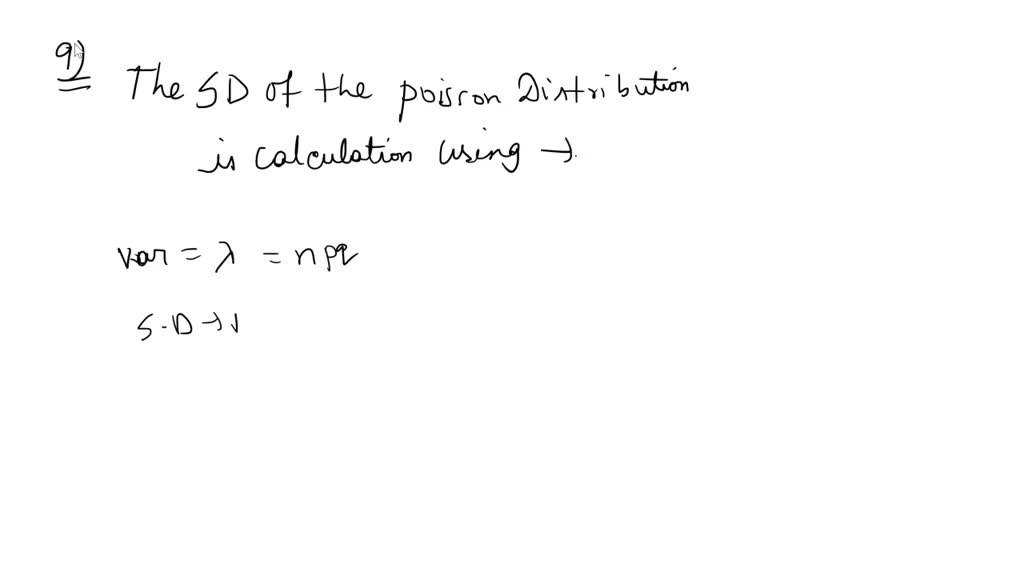 9)
The SD of the poisron Distribution
is calculation using →
var = λ = npq
S.D → √